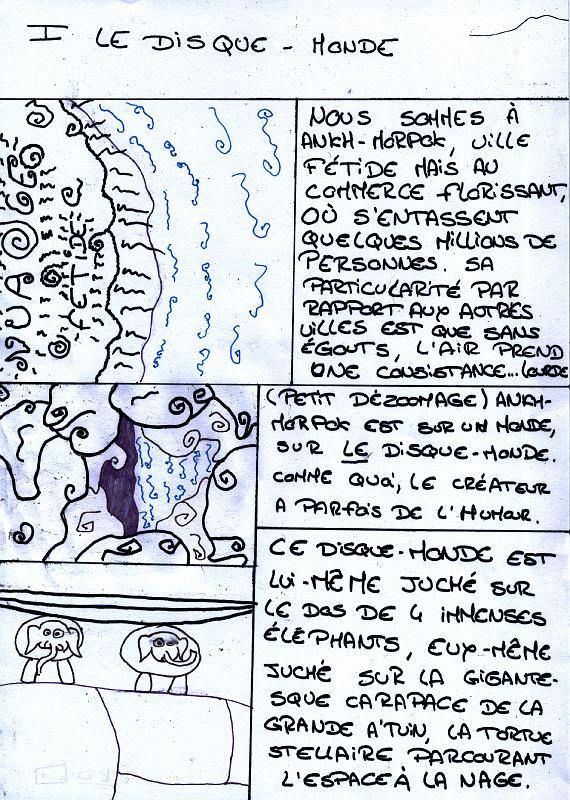 I LE DISQUE-MONDE
NOUS SOMMES À
ANKH-MORPOK, VILLE
FÉTIDE MAIS AU
COMMERCE FLORISSANT,
OÙ S'ENTASSENT
QUELQUES MILLIONS DE
PERSONNES. SA
PARTICULARITÉ PAR
RAPPORT AUX AUTRES
VILLES EST QUE SANS
ÉGOUTS, L'AIR PREND
UNE CONSISTANCE... LOURDE
FÉTIDE
(PETIT DÉZOOMAGE) ANKH-
MORPOK EST SUR UN MONDE,
SUR LE DISQUE-MONDE.
COMME QUOI, LE CRÉATEUR
A PARFOIS DE L'HUMOUR.
CE DISQUE-MONDE EST
LUI-MÊME JUCHÉ SUR
LE DOS DE 4 IMMENSES
ÉLÉPHANTS, EUX-MÊME
JUCHÉ SUR LA GIGANTE-
SQUE CARAPACE DE LA
GRANDE A'TUIN, LA TORTUE
STELLAIRE PARCOURANT
L'ESPACE À LA NAGE.